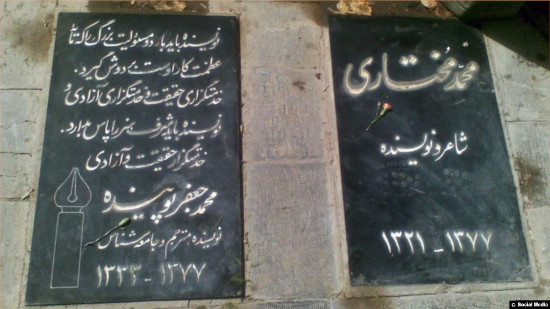 محمد مختاری
شاعر و نویسنده
۱۳۲۱ - ۱۳۷۷
نویسنده باید بار دو مسئولیت بزرگ را که
عظمت کار اوست بر دوش گیرد.
خدمتگزاری حقیقت و خدمتگزاری آزادی و
نویسنده باید شرف هنر را پاس بدارد.
خدمتگزار حقیقت و آزادی
محمد جعفر پوینده
نویسنده، مترجم و جامعه شناس
۱۳۳۳ - ۱۳۷۷
© Social Media